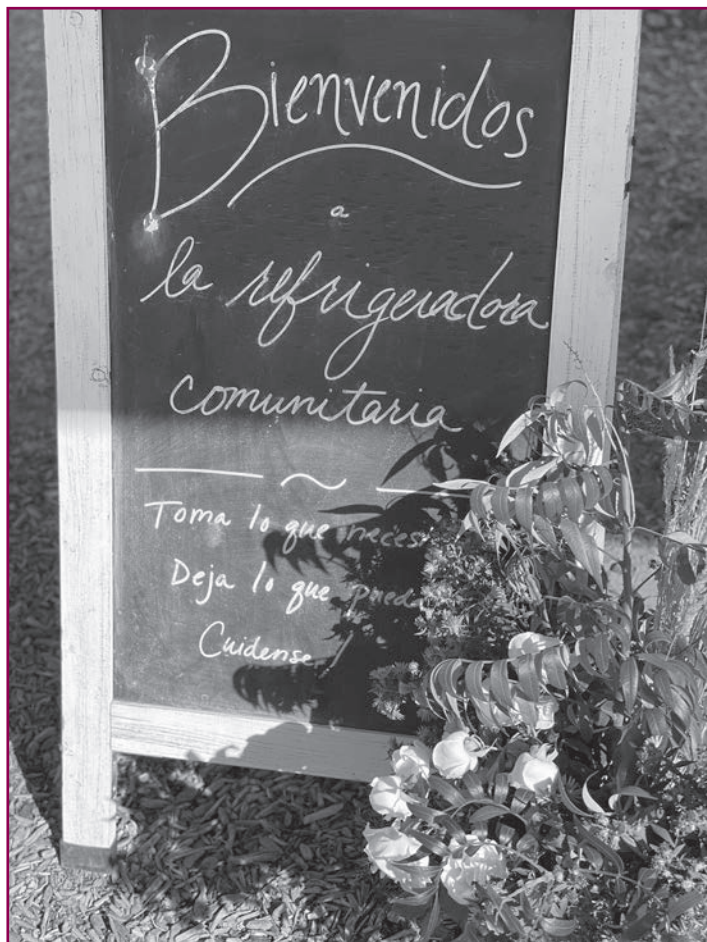 Bienvenidos
a
la refrigeradora
comunitaria
Toma lo que
Deja lo que
Cuidense!